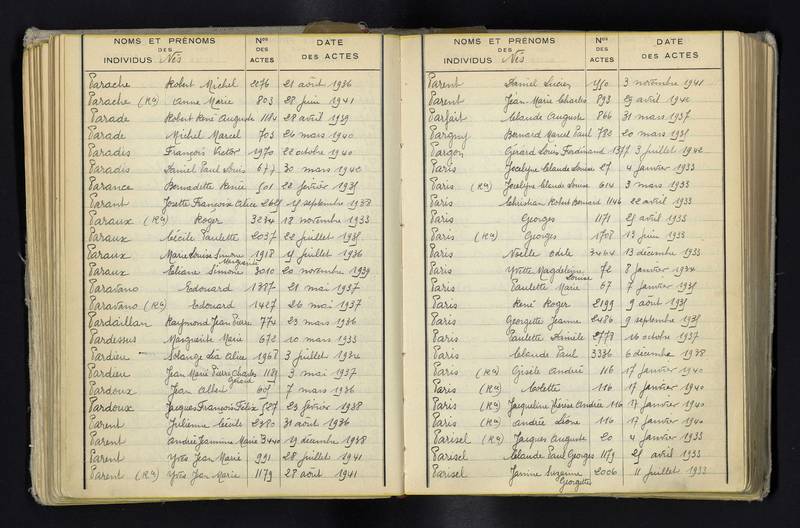 NOMS ET PRÉNOMS
DES
INDIVIDUS Nés
Nos
DES
ACTES
DATE
DES ACTES
Parache Robert Michel 2276 21 août 1936
Parache (Ra) Anne Marie 803 28 juin 1941
Parade Robert René Auguste 1184 28 avril 1939
Parade Michel Marcel 703 24 mars 1940
Paradis François Victor 1970 22 octobre 1940
Paradis Daniel Paul Louis 677 30 mars 1942
Parance Bernadette Renée 501 22 février 1935
Parant Josette Françoise Alice 15 septembre 1938
Paraux (Ra) Roger 3234 18 novembre 1933
Paraux Cécile Paulette 2037 22 juillet 1935
Paraux Marie Louise 1918 15 juillet 1936
Marguerite
Paraux Eliane Simone 3010 20 novembre 1939
Paravano Edouard 1387 21 mai 1937
Paravano (Ra) Edouard 1427 26 mai 1937
Pardaillan Raymond Jean Pierre 774 23 mars 1936
Pardessus Marguerite Marie 672 10 mars 1933
Pardieu Solange Alice 1968 3 juillet 1934
Pardieu Jean Marie Pierre Charles 1189 3 mai 1937
Gérard
Pardoux Jean Albert 605 7 mars 1936
Pardoux Jacques François Félix 527 23 février 1938
Parent Julienne Cécile 2380 31 août 1936
Parent Andrée Jeannine Marie 3440 19 décembre 1938
Parent Yves Jean Marie 991 28 juillet 1941
Parent (Ra) Yves Jean Marie 1179 28 août 1941
NOMS ET PRÉNOMS
DES
INDIVIDUS Nés
Nos
DES
ACTES
DATE
DES ACTES
Parent Daniel Lucien 1550 3 novembre 1941
Parent Jean Marie Charles 893 29 avril 1942
Parfait Claude Auguste 866 31 mars 1937
Pargny Bernard Marcel Paul 782 20 mars 1935
Pargon Gérard Louis Ferdinand 1377 3 juillet 1942
Paris Jocelyne Claude Louise 27 4 janvier 1933
Paris (Ra) Jocelyne Claude Louise 614 3 mars 1933
Paris Christian Robert Bernard 1146 22 avril 1933
Paris Georges 1171 25 avril 1933
Paris (Ra) Georges 1708 13 juin 1933
Paris Noëlle Odile 3464 13 décembre 1933
Paris Yvette Magdeleine 72 8 janvier 1934
Louise
Paris Paulette Marie 67 7 janvier 1935
Paris René Roger 2199 9 août 1935
Paris Georgette Jeanne 2486 9 septembre 1935
Paris Paulette Famile 2778 16 octobre 1937
Paris Claude Paul 3336 6 décembre 1938
Paris (Ra) Gisèle André 116 17 janvier 1940
Paris (Ra) Colette 116 17 janvier 1940
Paris (Ra) Jacqueline Andrée 116 17 janvier 1940
Paris (Ra) Andrée Léone 116 17 janvier 1940
Parisel (Ra) Jacques Auguste 20 4 janvier 1933
Parisel Claude Paul Georges 1179 25 avril 1933
Parisel Janine Suzanne 2006 11 juillet 1933
Georgette